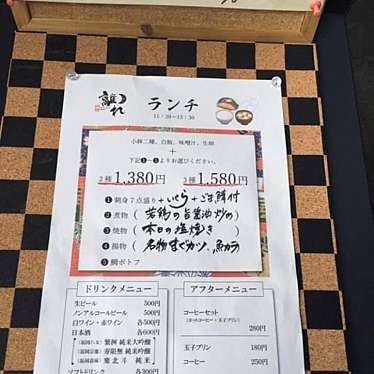 離れ
ランチ
11:30~13:30
小鉢二種、白飯、味噌汁、生卵
+
下記❶~❺よりお選びください。
2種 1,380円 3種 1,580円
❶刺身7点盛り+いくら+ごま鯖付
❷煮物(若鶏の旨醤油炒め)
❸焼物(本日の塩焼き)
❹揚物(名物すぐカツ、魚カラ)
❺鯛ポトフ
ドリンクメニュー
生ビール 500円
ノンアルコールビール 500円
白ワイン・赤ワイン 各500円
日本酒 各600円
(福岡八女) 繁桝 純米大吟醸
寿限無 純米吟醸
東北斗 純米
ソフトドリンク 各300円
アフターメニュー
コーヒーセット
(ホットコーヒー+玉子プリン)
280円
玉子プリン 180円
コーヒー 150円